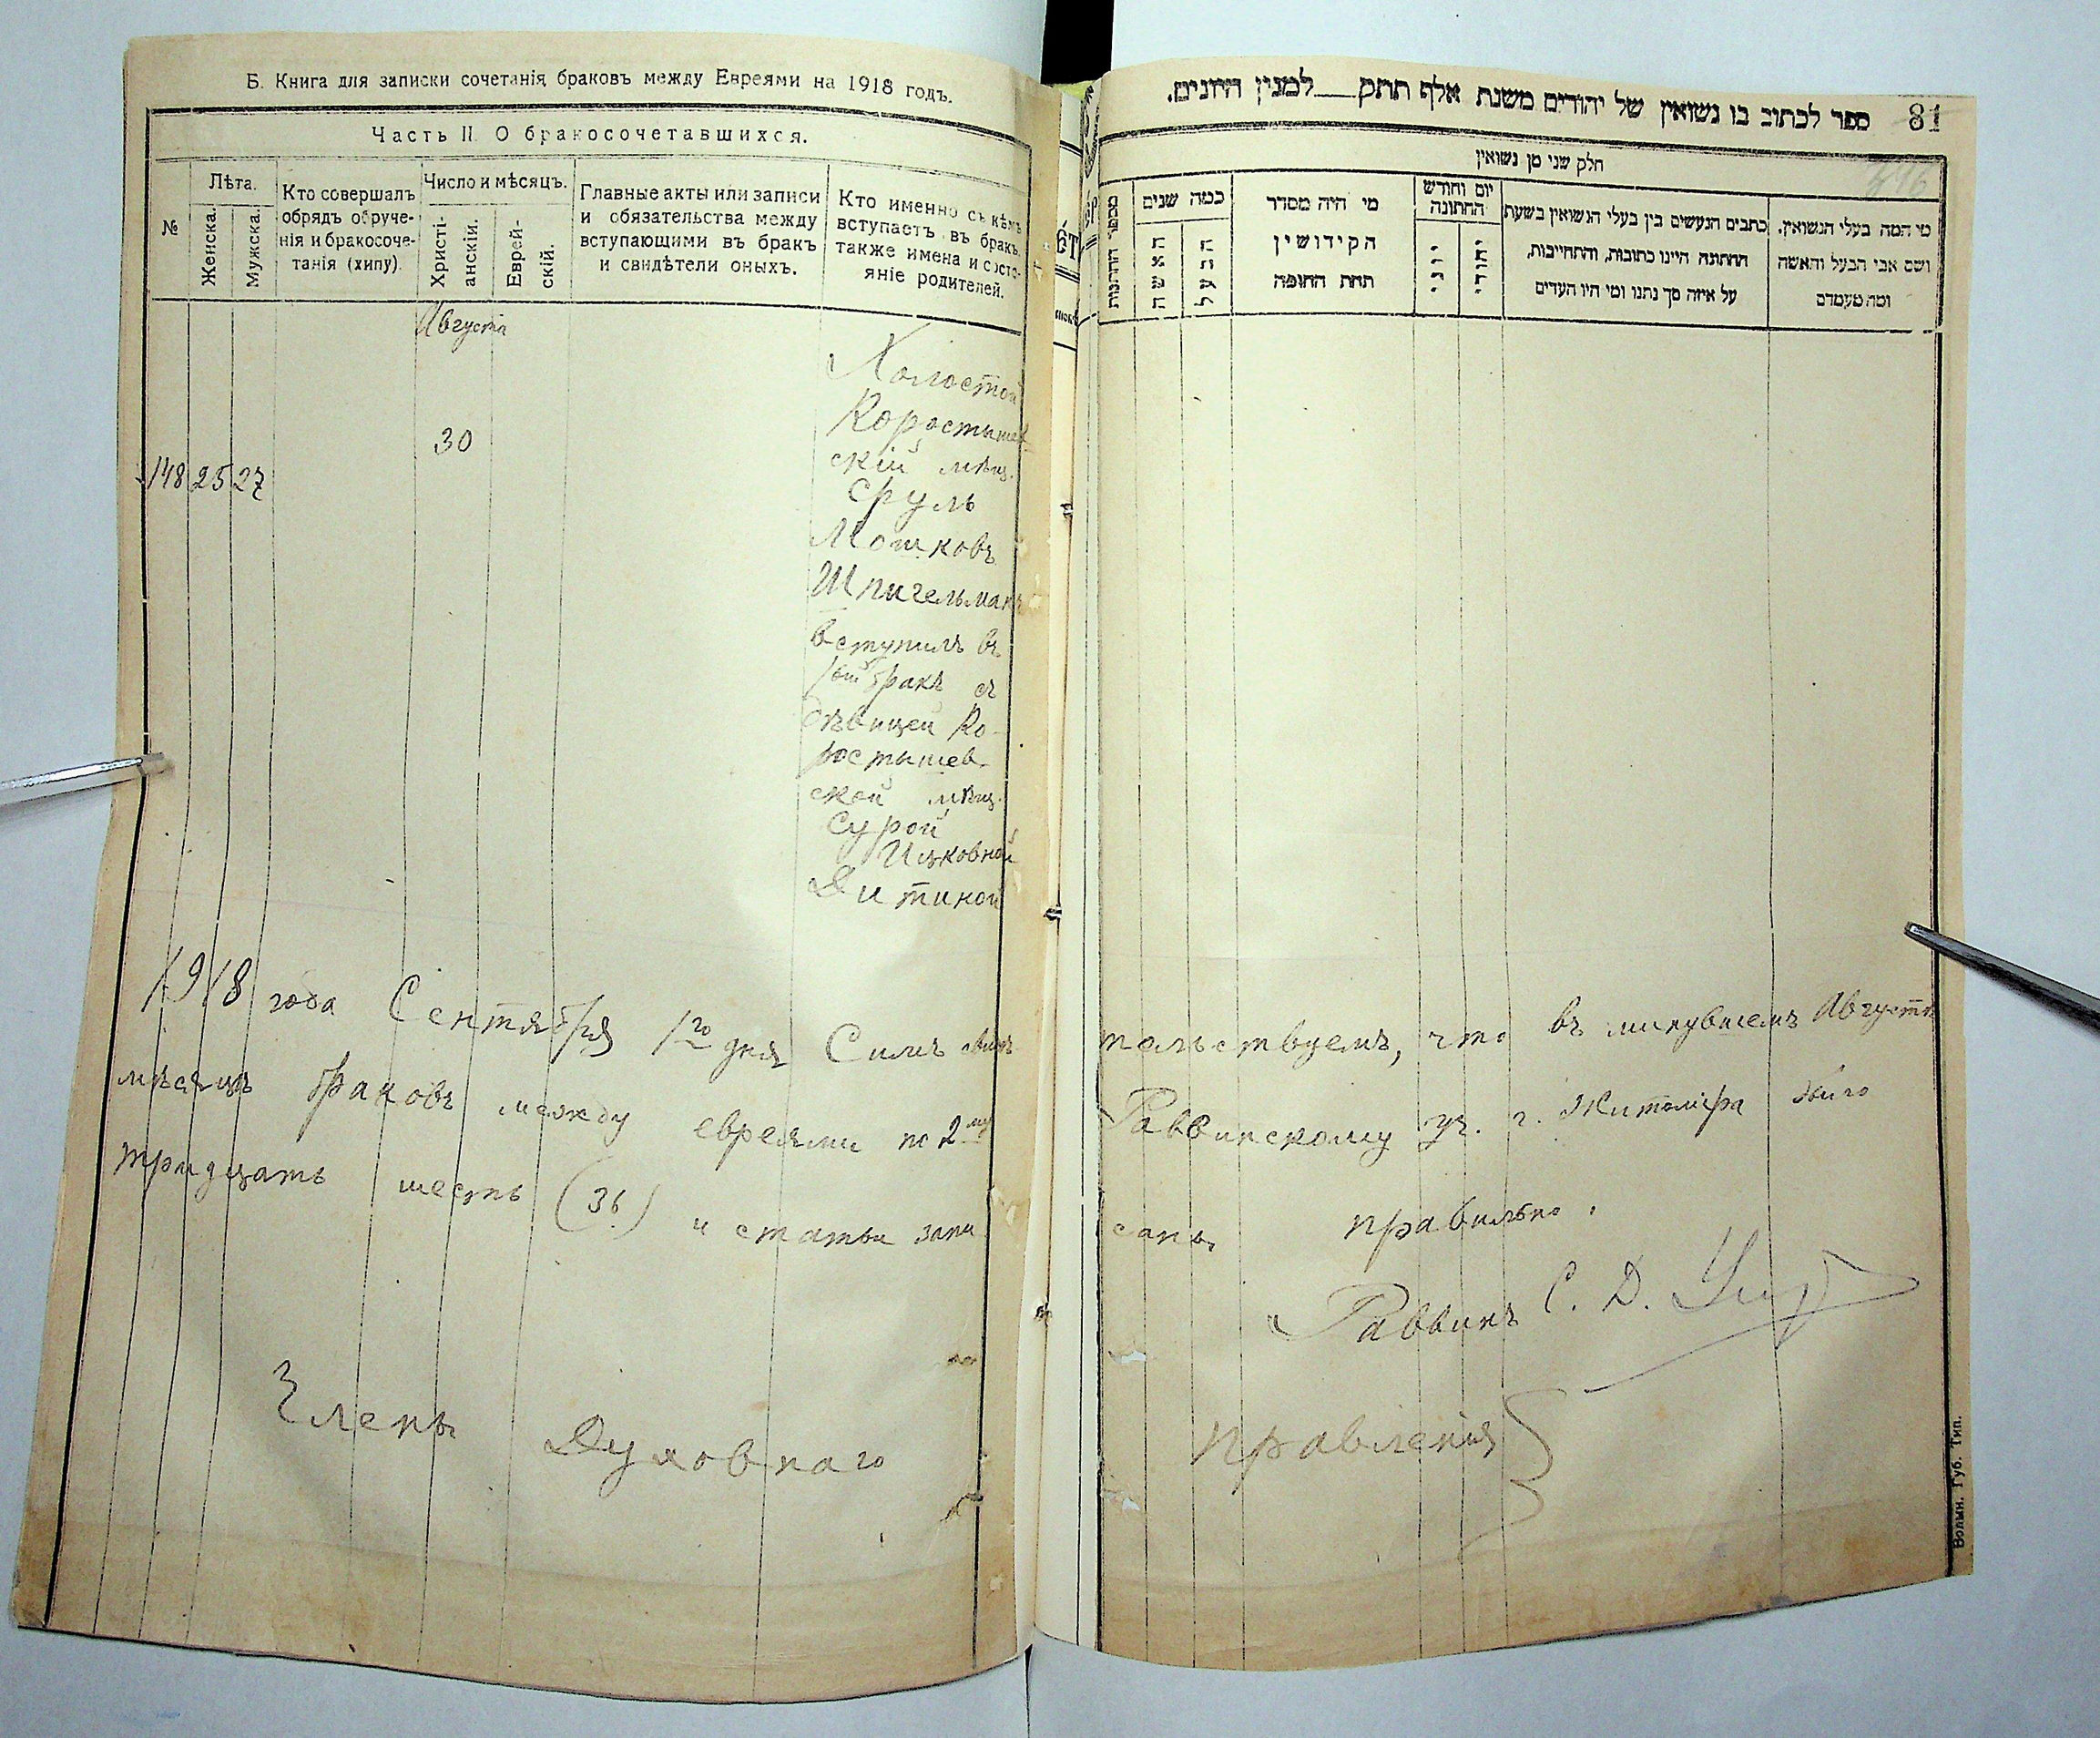 Б. Книга для записки сочетанія браковъ между Евреями на 1918 годъ.
Часть II. О бракосочетавшихся.
№
Лѣта.
Женска.
Мужска.
Кто совершалъ
обрядъ обруче-
нія и бракосоче-
танія (хипу).
Число и мѣсяцъ.
Христі-
анскій.
Еврей-
скій.
Главные акты или записи
и обязательства между
вступающими въ бракъ
и свидѣтели оныхъ.
Кто именно съ кѣмъ
вступаетъ въ бракъ,
также имена и состо-
яніе родителей.
Августа
148 25 27
30
Холостой
Коростышев
скій мѣщ.
Сруль
Мошковъ
Шпигельманъ
вступилъ въ
1ый бракъ съ
дѣвицей Ко-
ростышев-
ской мѣщ.
Сурой
Ицковной
Дитиной
1918 года Сентября 1го дня Симъ свидѣ
мѣсяцѣ браковъ между евреями по 2му
тридцать шесть (36) и статьи запи
Членъ Духовнаго
ספר לכתוב בו נשואין של יהודים משנת אלף תתק___למנין היונים.
81
חלק שני מן נשואין
מספר החתונות
כמה שנים
האשה
הבעל
מי היה מסדר
הקידושין
תחת החופה
יום וחודש
החתונה
יוני
יהודי
כתבים הנעשים בין בעלי הנשואין בשעת
החתונה היינו כתובות, והתחייבות,
על איזה סך נתנו ומי היו העדים
מי המה בעלי הנשואין,
ושם אבי הבעל והאשה
ומה מעמדם
тельствуемъ, что въ минувшемъ Августѣ
Раввинскому уч. г. Житоміра было
саны правильно.
Раввинъ С. Д.
Правленія
Волын. Губ. Тип.